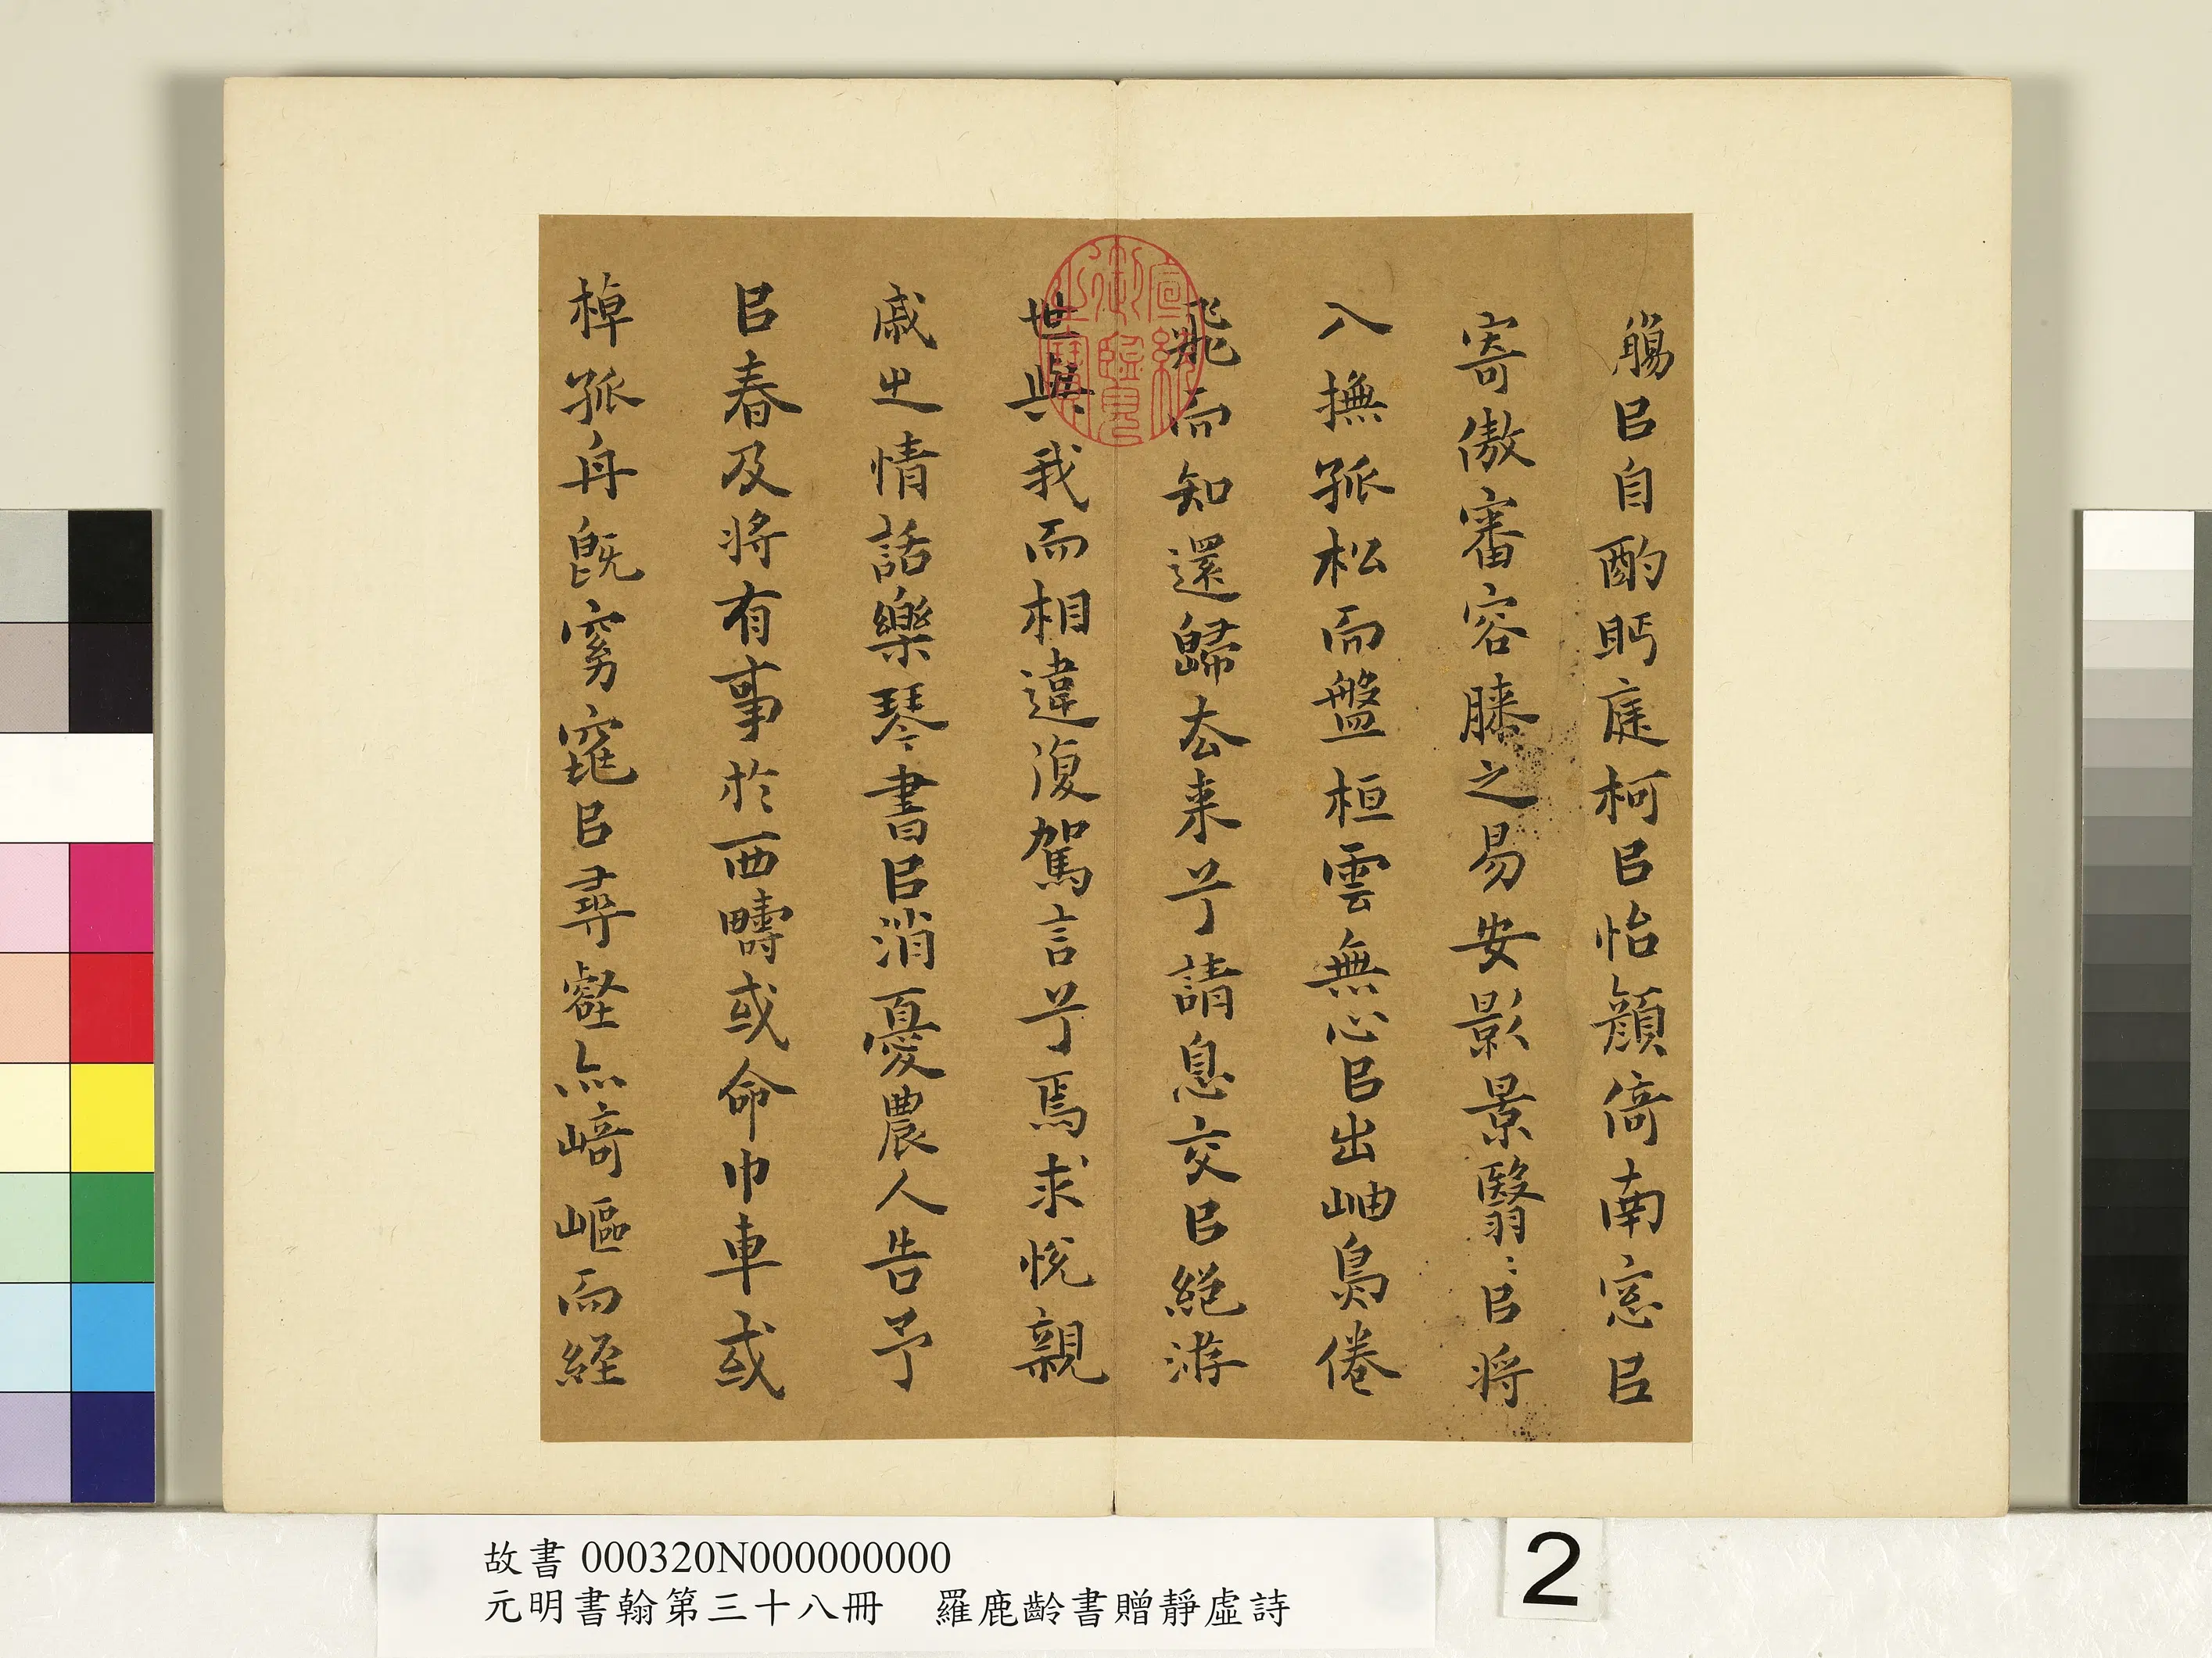 觴㠯自酌眄庭柯㠯怡顏倚南窓㠯
寄傲審容膝之易安影景翳〻㠯将
入撫孤松而盤桓雲無心㠯出岫鳥倦
飛而知還歸去来兮請息交㠯絕游
世與我而相違復駕言兮焉求悅親
戚之情話樂琴書㠯消憂農人告予
㠯春及将有事於西疇或命巾車或
棹孤舟既窈窕㠯尋壑亦崎嶇而経
宣統御覽之寶
故書 000320N000000000
元明書翰第三十八冊 羅鹿齡書贈靜虛詩
2